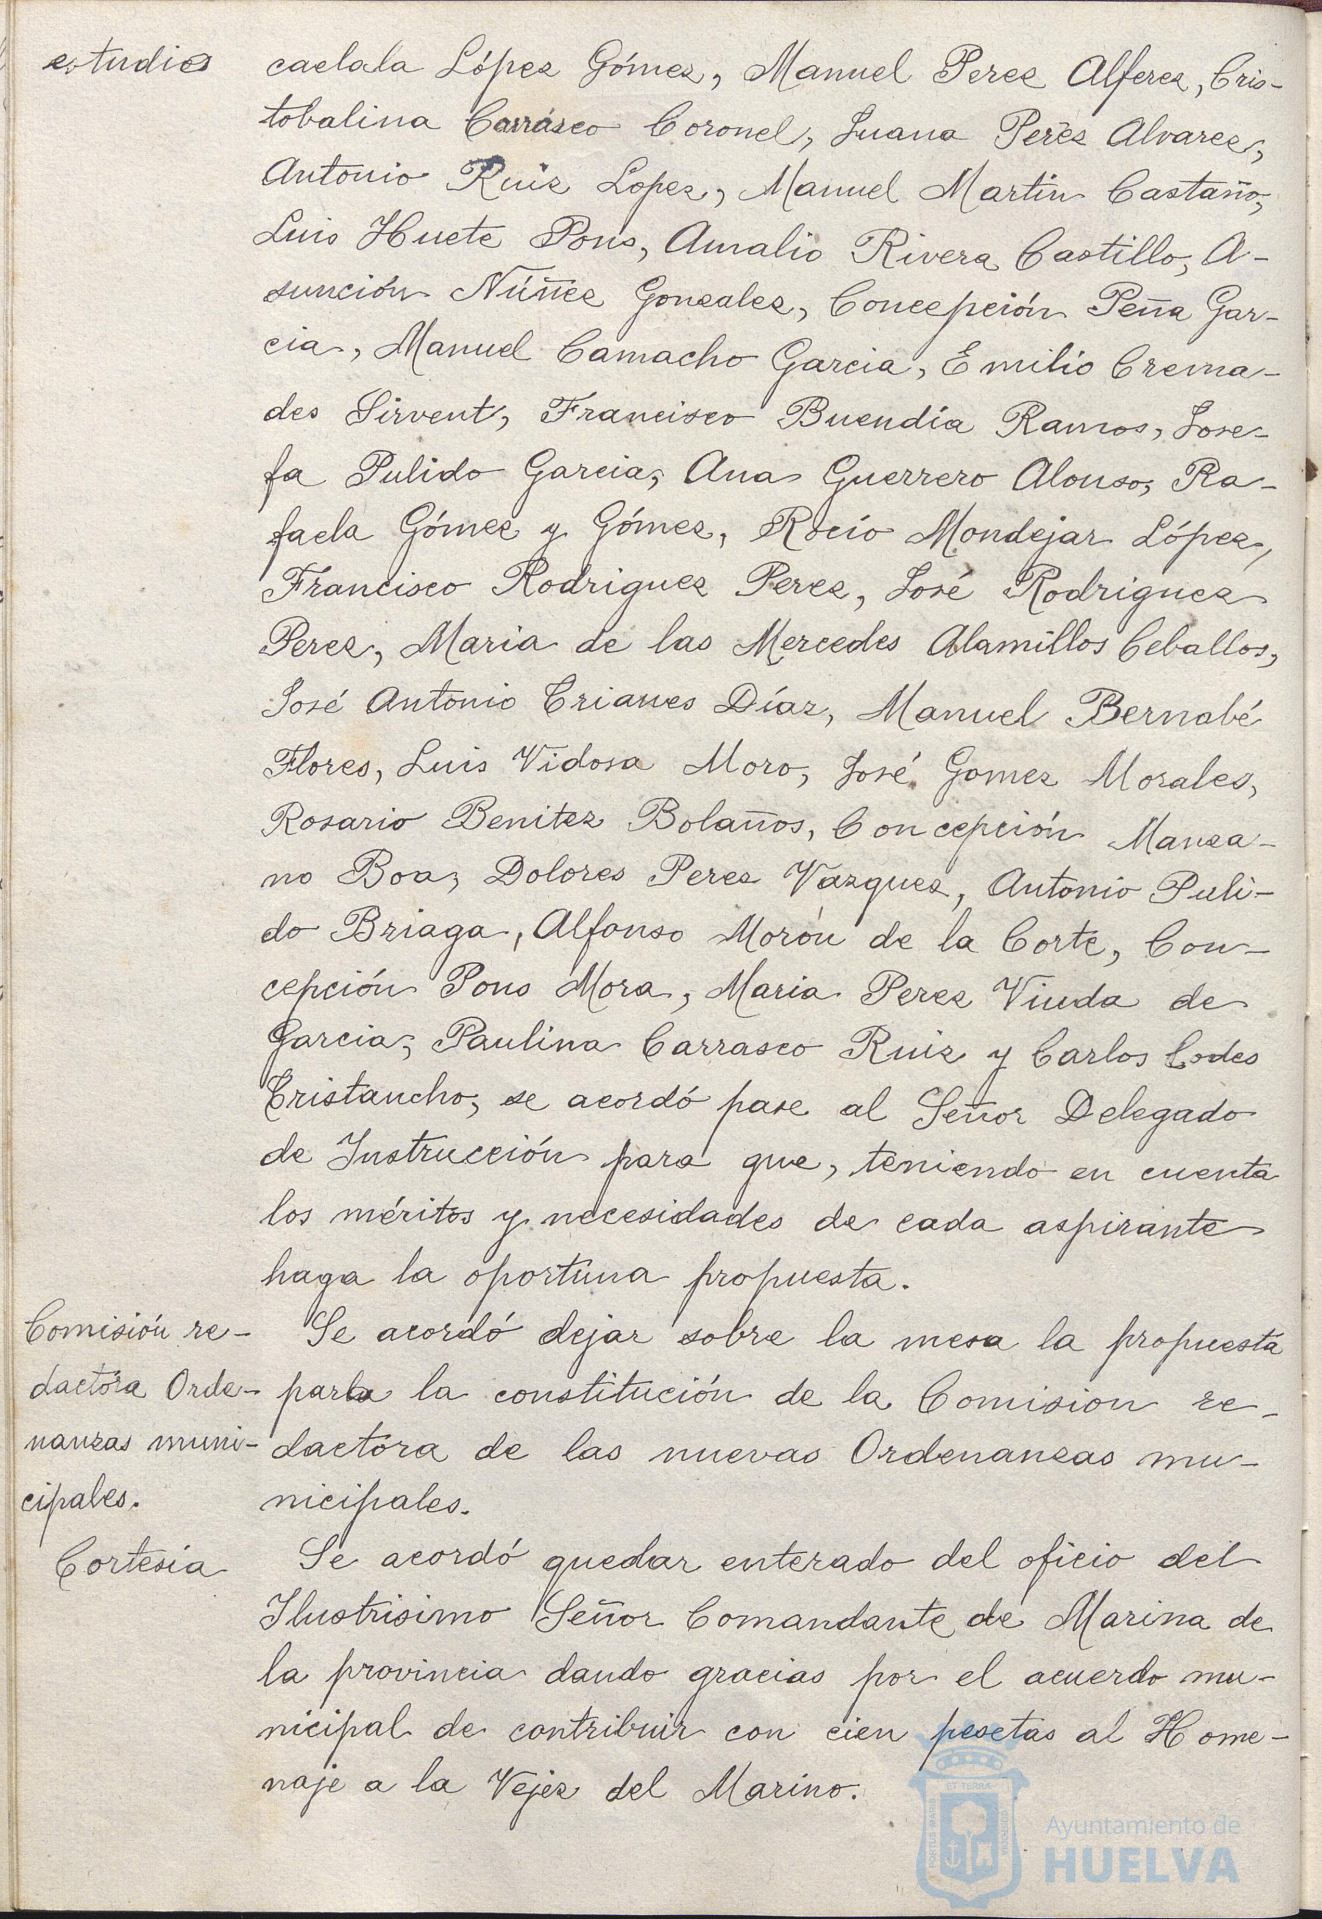 estudios
caelala López Gómez, Manuel Perez Alferez, Cris-
tobalina Carrásco Coronel, Juana Peréz Alvarez,
Antonio Ruiz Lopez, Manuel Martin Castaño,
Luis Huete Pons, Amalio Rivera Castillo, A-
sunción Núñez Gonzalez, Concepción Peña Gar-
cia, Manuel Camacho Garcia, Emilio Crema-
des Sirvent, Francisco Buendía Ramos, Jose-
fa Pulido Garcia, Ana Guerrero Alonso, Ra-
faela Gómez y Gómez, Rocío Mondejar López,
Francisco Rodriguez Perez, José Rodriguez
Perez, Maria de las Mercedes Alamillos Ceballos,
José Antonio Crianes Díaz, Manuel Bernabé
Flores, Luis Vidosa Moro, José Gomez Morales,
Rosario Benitez Bolaños, Concepción Manza-
no Boa, Dolores Perez Vazquez, Antonio Puli-
do Briaga, Alfonso Morón de la Corte, Con-
cepción Pons Mora, Maria Perez Viuda de
Garcia, Paulina Carrasco Ruiz y Carlos Codes
Cristancho, se acordó pase al Señor Delegado
de Instrucción para que, teniendo en cuenta
los méritos y necesidades de cada aspirante
haga la oportuna propuesta.
Comisión re-
dactora Orde-
nanzas muni-
cipales.
Se acordó dejar sobre la mesa la propuesta
para la constitución de la Comision re-
dactora de las nuevas Ordenanzas mu-
nicipales.
Cortesía
Se acordó quedar enterado del oficio del
Ilustrisimo Señor Comandante de Marina de
la provincia dando gracias por el acuerdo mu-
nicipal de contribuir con cien pesetas al Home-
naje a la Vejez del Marino.
ET TERRA
PORTUS MARIS
CUSTODIA
Ayuntamiento de
HUELVA